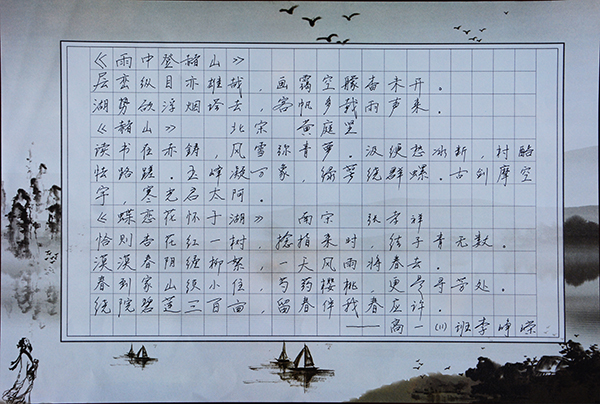 《雨中登赭山》
层峦纵目亦雄哉，画霭空朦奋未开。
湖势欲浮烟塔去，客帆多我雨声来。
《赭山》 北宋 黄庭坚
读书在赤铸，风雪弥青萝。汲绠愁冰断，村酤
怯路蹉。玉峰凝万象，绿萼绕群螺。古剑摩空
宇，寒光启太阿。
《蝶恋花怀于湖》 南宋 张孝祥
恰则杏花红一树，捻指来时，结子青无数。
漠漠春阴缠柳絮，一天风雨将春去。
春到家山须小住，芍药樱桃，更是寻芳处。
绕院碧莲三百亩，留春伴我春应许。
——高一(1)班李峥嵘